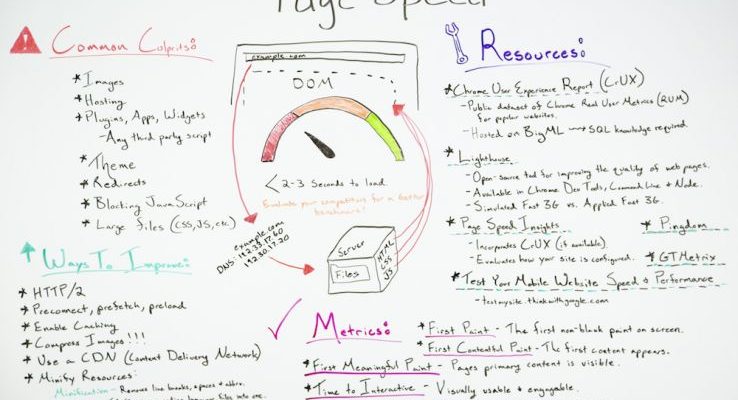 Page Speed
Common Culprits:
* Images
* Hosting
* Plugins, Apps, Widgets
- Any third party script
* Theme
* Redirects
* Blocking JavaScript
* Large files (CSS, JS, etc)
Ways To Improve:
* HTTP/2
* Preconnect, prefetch, preload
* Enable Caching
* Compress Images!!!
* Use a CDN (Content Delivery Network)
* Minify Resources:
Minification - Remove line breaks, spaces + abbrv.
files into one.
example.com
DOM
< 2-3 Seconds to load.
Evaluate your competitors for a better
benchmark!
example.com
DNS:
Server
Files
HTML
CSS
JS
Metrics:
* First Paint - The first non-blank paint on screen.
* First Contentful Paint - The first content appears.
* First Meaningful Paint - Pages primary content is visible.
* Time to Interactive - Visually usable & engagable.
Resources:
* Chrome User Experience Report (CrUX)
- Public dataset of Chrome Real User Metrics (RUM)
for popular websites.
- Hosted on BigML → SQL knowledge required.
* Lighthouse
- Open-source tool for improving the quality of web pages.
- Available in Chrome Dev Tools, Command Line + Node.
- Simulated Fast 3G vs. Applied Fast 3G.
* Page Speed Insights
- Incorporates CrUX (if available)
- Evaluates how your site is configured.
* Pingdom
* GTMetrix
* Test Your Mobile Website Speed + Performance
- testmysite.thinkwithgoogle.com